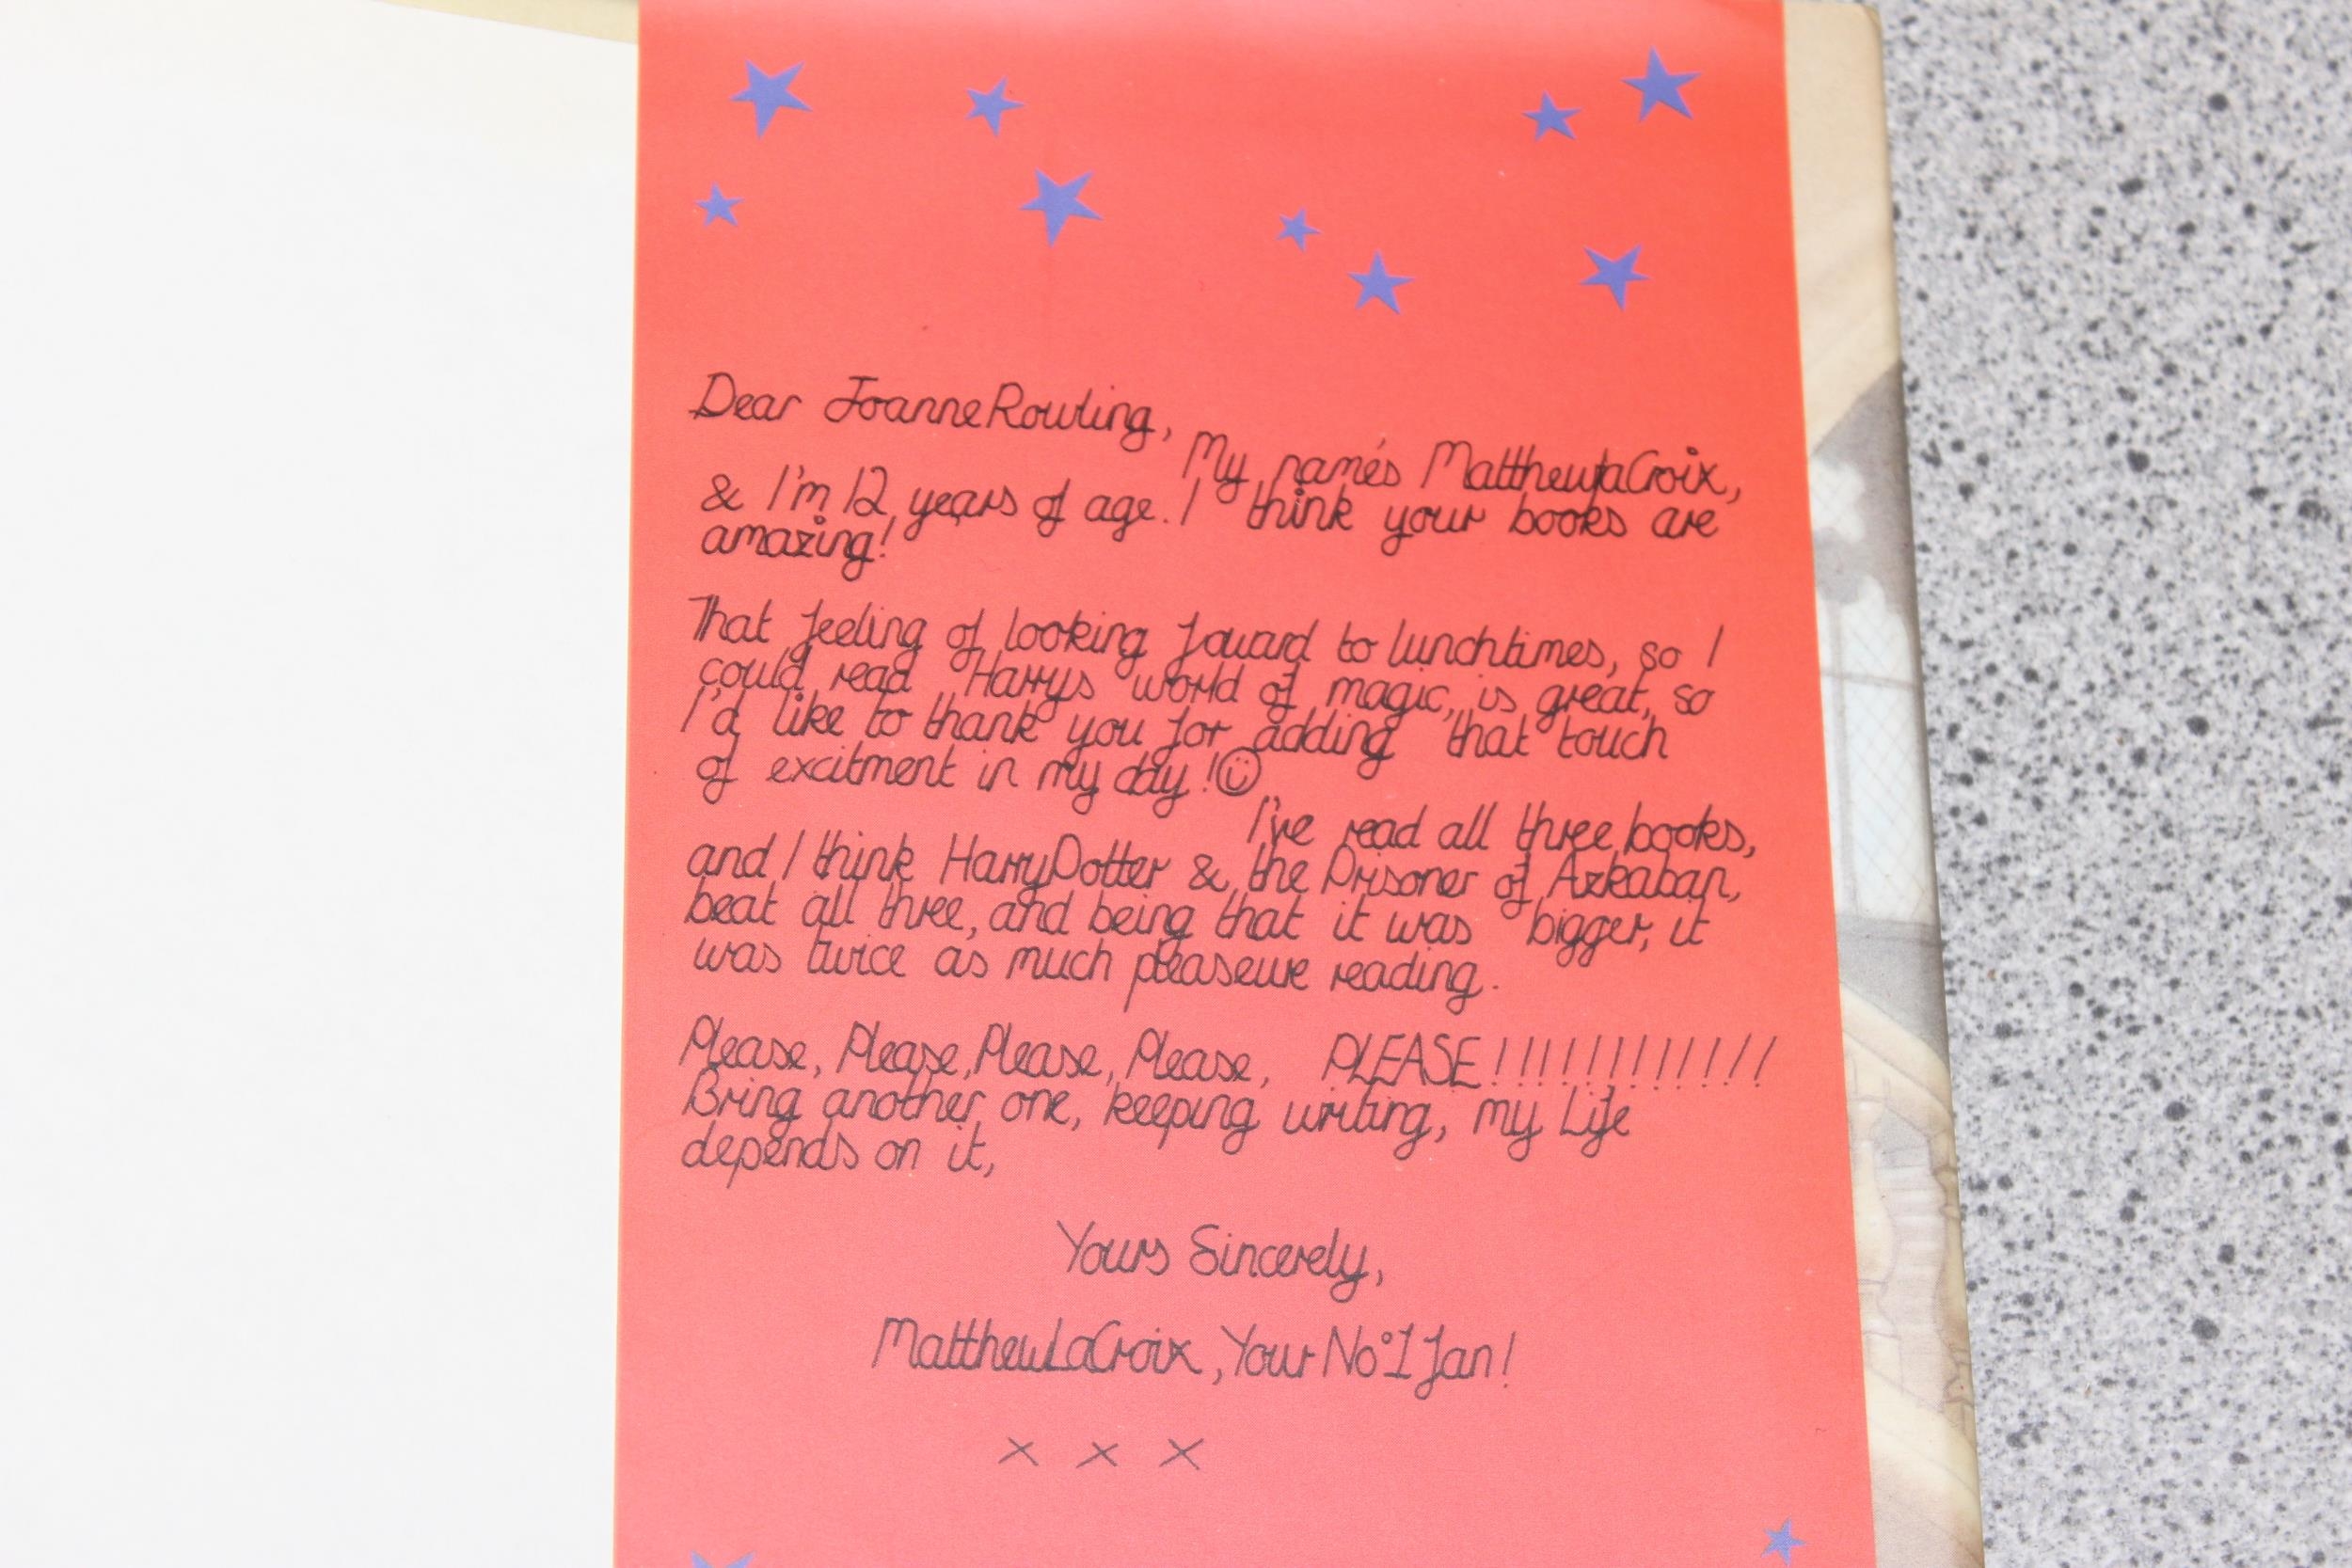 Dear Joanne Rowling,
My name's Matthew LaCroix,
& I'm 12 years of age. I think your books are
amazing!
That feeling of looking foward to lunchtimes, so I
could read Harrys world of magic, is great, so
I'd like to thank you for adding that touch
of excitment in my day!
I've read all three books,
and I think Harry Potter & the Prisoner of Azkaban,
beat all three, and being that it was bigger, it
was twice as much pleaseure reading.
Please, Please, Please, Please, PLEASE!!!!!!!!!!!!
Bring another one, keeping writing, my Life
depends on it,
Yours Sincerely,
Matthew LaCroix, Your No°1 fan!
x x x